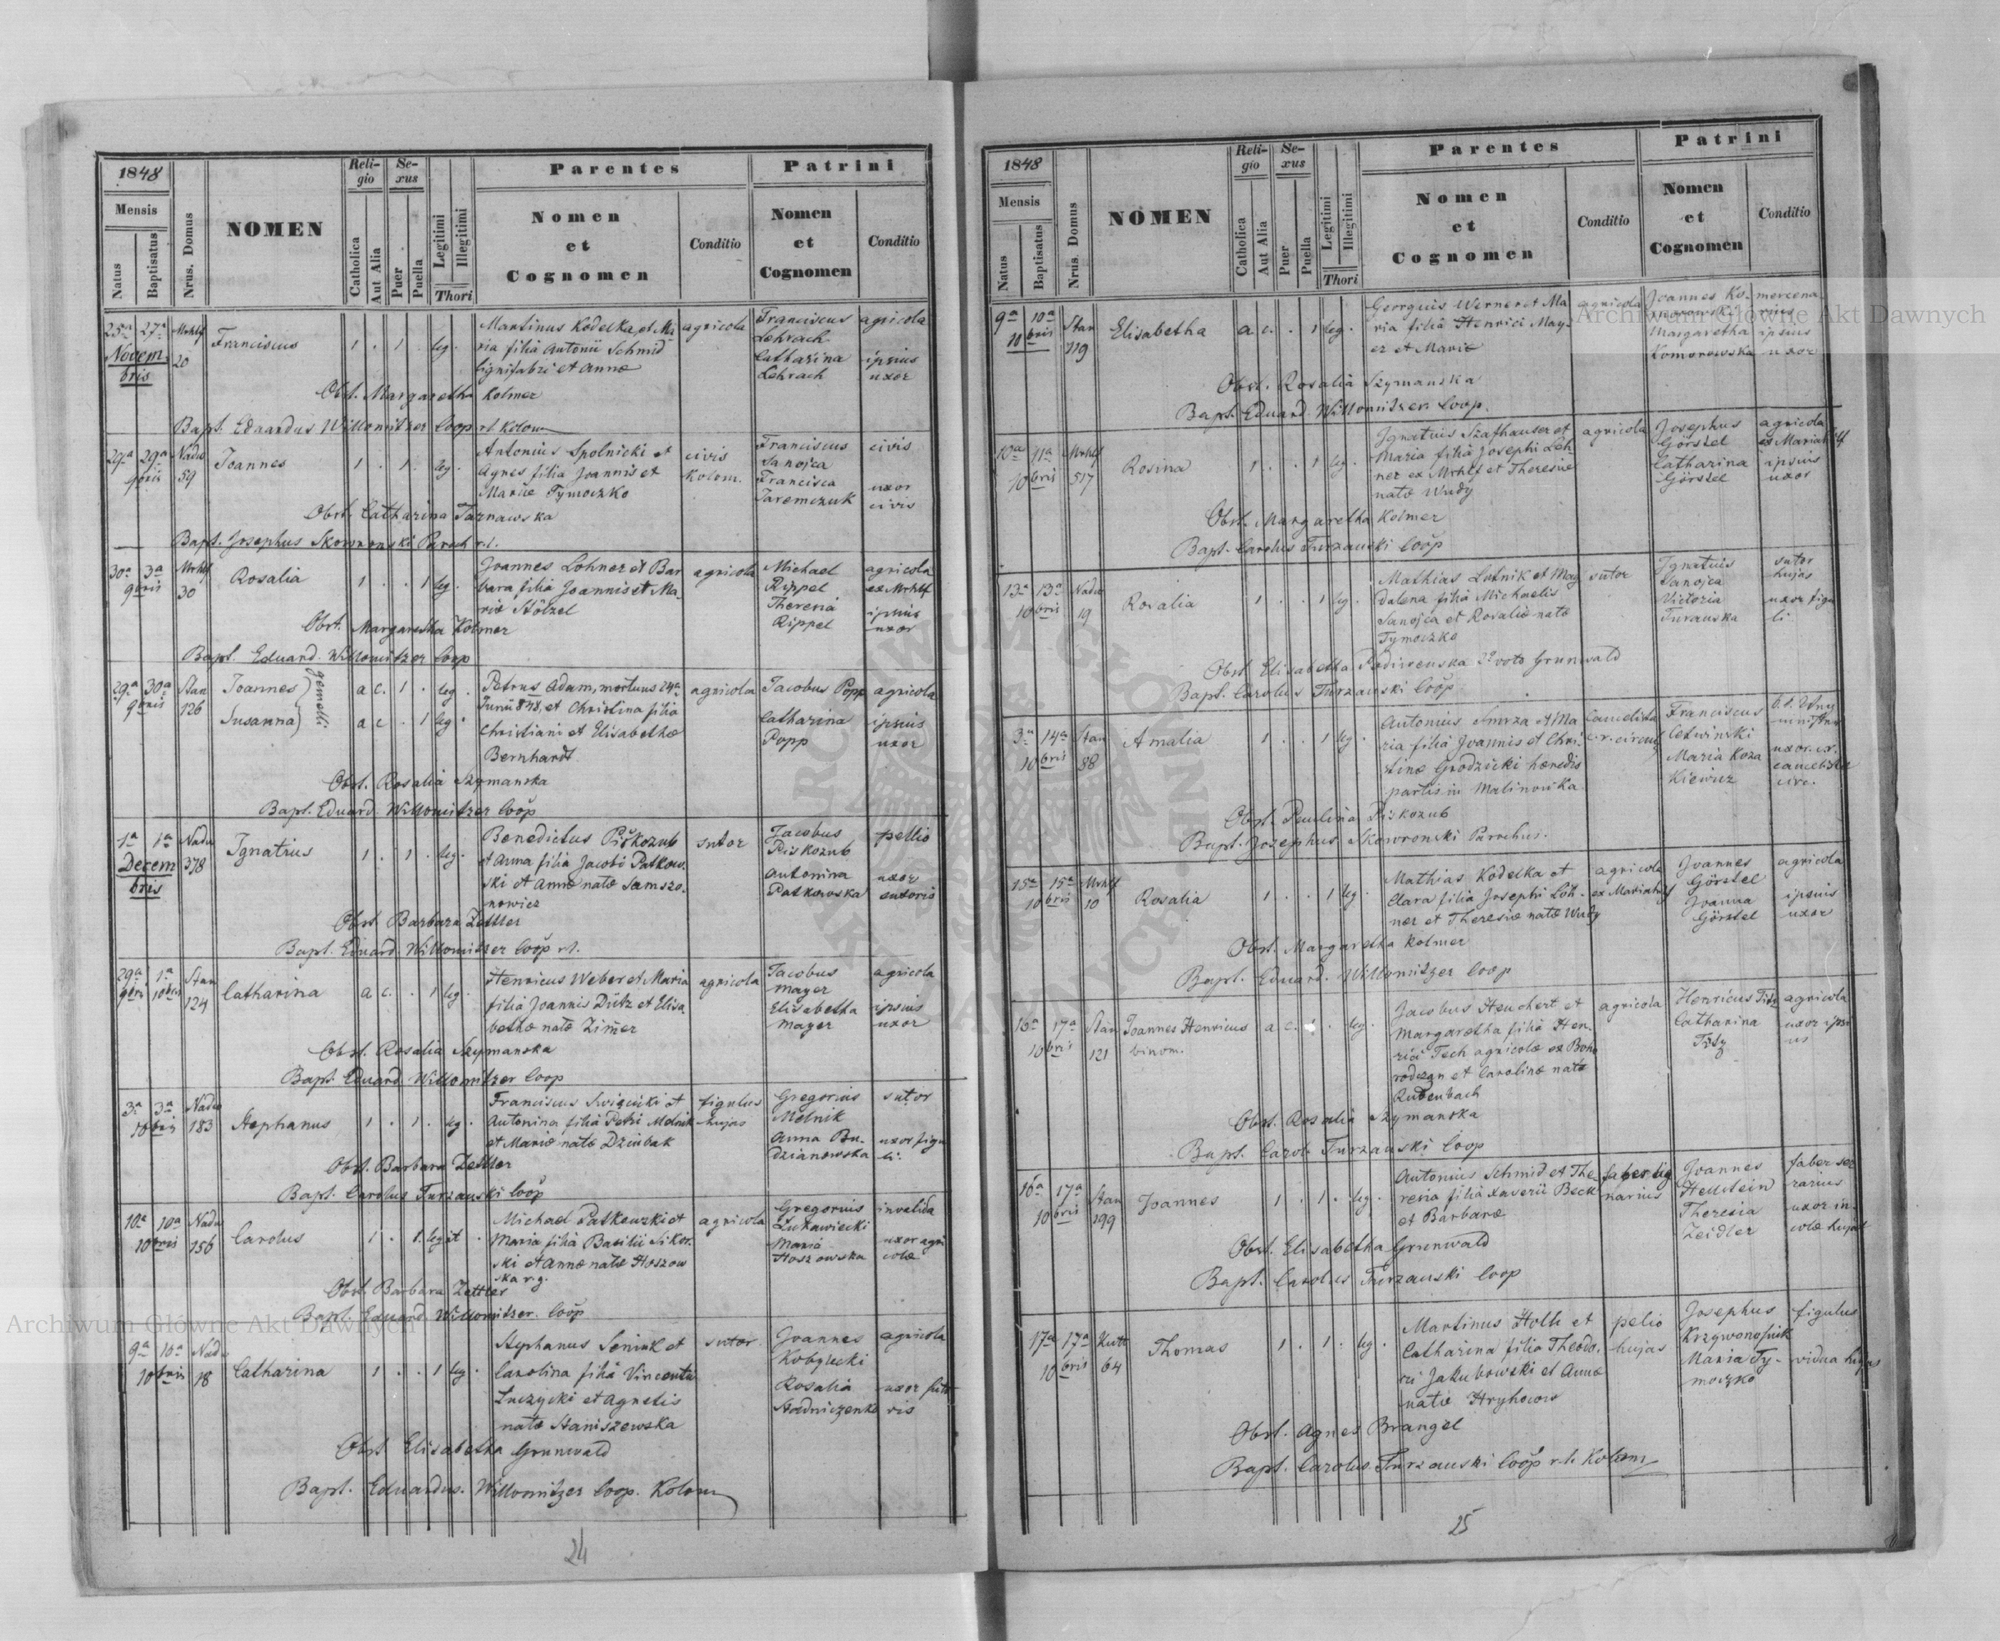 1848
Mensis
Natus
Baptisatus
Nrus. Domus
NOMEN
Religio
Catholica
Aut Alia
Sexus
Puer
Puella
Legitimi
Illegitimi
Thori
Parentes
Nomen
et
Cognomen
Conditio
Patrini
Nomen
et
Cognomen
Conditio
25a 27a Mrhlf
Novembris
20
Franciscus
1 . 1 . leg.
Martinus Kodelka et Ma-
ria filia Antonii Schmid
lignifabri et Annæ
agricola
Franciscus
Lehrach
Catharina
Lehrach
agricola
ipsius
uxor
Obst. Margaretha Kolmer
Bapt. Eduardus Willomitzer Coop rl. Kolom
29a 29a Nadw
9bris 59
Joannes
1 . 1 . leg.
Antonius Spolnicki et
Agnes filia Joannis et
Mariæ Tymoczko
civis
Kolom.
Franciscus
Sanojca
Francisca
Jaremczuk
civis
uxor
civis
Obst. Catharina Tarnawska
Bapt. Josephus Skowronski Paroch r.l.
30a 3a Mrhlf
9bris 30
Rosalia
1 . . 1 leg.
Joannes Lohner et Bar
bara filia Joannis et Ma-
riæ Hölzel
agricola
Michael
Rippel
Theresia
Rippel
agricola
ex Mrhlf
ipsius
uxor
Obst. Margaretha Kolmer
Bapt. Eduard. Willomitzer Coop
29a 30a Stan
9bris 126
Joannes
Susanna
gemelli
a c. 1 . leg.
a c. . 1 leg.
Petrus Adam, mortuus 24a
Junii 848, et Christina filia
Christiani et Elisabethæ
Bernhardt
agricola
Jacobus Popp
Catharina
Popp
agricola
ipsius
uxor
Obst. Rosalia Szymanska
Bapt. Eduard. Willomitzer Coop
1a 1a Nadw
Decembris
378
Ignatius
1 . 1 . leg.
Benedictus Piskozub
et Anna filia Jacobi Patkows-
ki et Annæ natæ Samszo-
nowicz
sutor
Jacobus
Piskozub
Antonina
Patkowska
pellio
uxor
sutoris
Obst. Barbara Zettler
Bapt. Eduard. Willomitzer Coop r.l.
29a 1a Stan
9bris 10bris 124
Catharina
a c. . 1 leg.
Henricus Weber et Maria
filia Joannis Dietz et Elisa
bethæ natæ Zimer
agricola
Jacobus
Mayer
Elisabetha
Mayer
agricola
ipsius
uxor
Obst. Rosalia Szymanska
Bapt. Eduard. Willomitzer Coop
3a 3a Nadw
10bris 183
Stephanus
1 . 1 . leg.
Franciscus Swięcicki et
Antonina filia Petri Melnik
et Mariæ natæ Dziubak
figulus
hujas
Gregorius
Melnik
Anna Bu-
dzianowska
sutor
uxor figu
li.
Obst. Barbara Zettler
Bapt. Carolus Turzanski Coop
10a 10a Nadw
10bris 156
Carolus
1 . 1. legit.
Michael Patkowski et
Maria filia Basilii Sikor-
ski et Annæ natæ Hoszow
ska r.g.
agricola
Gregorius
Lukawiecki
Maria
Hoszowska
invalida
uxor agri
colæ
Obst. Barbara Zettler
Bapt. Eduard Willomitzer. Coop
9a 10a Nadw
10bris 18
Catharina
1 . . 1 leg.
Stephanus Seniuk et
Carolina filia Vincentii
Luczycki et Agnetis
natæ Staniszewska
sutor
Joannes
Kobylecki
Rosalia
agricola
uxor suto
ris
Obst. Elisabetha Grunwald
Bapt. Eduardus. Willomitzer Coop. Kolom
24
1848
Mensis
Natus
Baptisatus
Nrus. Domus
NOMEN
Religio
Catholica
Aut Alia
Sexus
Puer
Puella
Legitimi
Illegitimi
Thori
Parentes
Nomen
et
Cognomen
Conditio
Patrini
Nomen
et
Cognomen
Conditio
9a 10a Stan
10bris 119
Elisabetha
a c. . 1 leg.
Georgius Werner et Ma
ria filia Henrici May-
er et Mariæ
agricola
Joannes Ko-
morowski
Margaretha
Komorowska
mercena
rius
ipsius
uxor
Obst. Rosalia Szymanska
Bapt. Eduard. Willomitzer Coop.
10a 11a Mrhlf
10bris 517
Rosina
1 . . 1 leg.
Ignatius Szafhauser et
Maria filia Josephi Leh-
ner ex Mrhlf et Theresiæ
natæ Wudy
agricola
Josephus
Görstel
Catharina
Görstel
agricola
ex Mariahilf
ipsius
uxor
Obst. Margaretha Kolmer
Bapt. Carolus Turzanski Coop
13a 13a Nadw
10bris 19
Rosalia
1 . . 1 leg.
Mathias Lutnik et Mag
dalena filia Michaelis
Sanojca et Rosaliæ natæ
Tymoczko
sutor
Ignatius
Sanojca
Victoria
Turanska
sutor
hujas
uxor figu
li
Obst. Elisabetha Radisewska 2o voto Grunwald
Bapt. Carolus Turzanski Coop
3a 14a Stan
10bris 88
Amalia
1 . . 1 leg.
Antonius Smrza et Ma
ria filia Joannis et Chri-
stinæ Grodzicki hæredis
partis in Malinowka
Cancelista
c.r. circul
Franciscus
Letwinski
Maria Koza
kiewicz
uxor. c.r.
cancelistæ
circ.
Obst. Paulina Piskozub
Bapt. Josephus Skowronski Parochus.
15a 15a Mrhlf
10bris 10
Rosalia
1 . . 1 leg.
Mathias Kodelka et
Clara filia Josephi Löh-
ner et Theresiæ natæ Wudy
agricola
ex Mariahilf
Joannes
Görstel
Joanna
Görstel
agricola
ipsius
uxor
Obst. Margaretha Kolmer
Bapt. Eduard. Willomitzer Coop
16a 17a Stan
10bris 121
Joannes Henricus
binom.
a c. 1 . leg.
Jacobus Heuchert et
Margaretha filia Hen-
rici Tech agricolæ ex Boho
rodczan et Carolinæ natæ
Rudenbach
agricola
Henricus
Catharina
agricola
uxor ipsi
us
Obst. Rosalia Szymanska
Bapt. Carol. Turzanski Coop
16a 17a Stan
10bris 199
Joannes
1 . 1 . leg.
Antonius Schmid et The
resia filia Xaverii Beck
et Barbaræ
faber lig
narius
Joannes
Hellstein
Theresia
Zeidler
faber ser
rarius
uxor in-
colæ hujat
Obst. Elisabetha Grunwald
Bapt. Carolus Turzanski Coop
17a 17a Kutt
10bris 64
Thomas
1 . 1 . leg.
Martinus Holh et
Catharina filia Theodo-
ri Jakubowski et Annæ
natæ Hryhorow
pelio
hujas
Josephus
Krzywonosiuk
Maria Ty-
moczko
figulus
vidua hujas
Obst. Agnes Brangel
Bapt. Carolus Turzanski Coop r.l. Kolom
25
Archiwum Główne Akt Dawnych
Archiwum Główne Akt Dawnych
ARCHIWUM GŁÓWNE AKT DAWNYCH